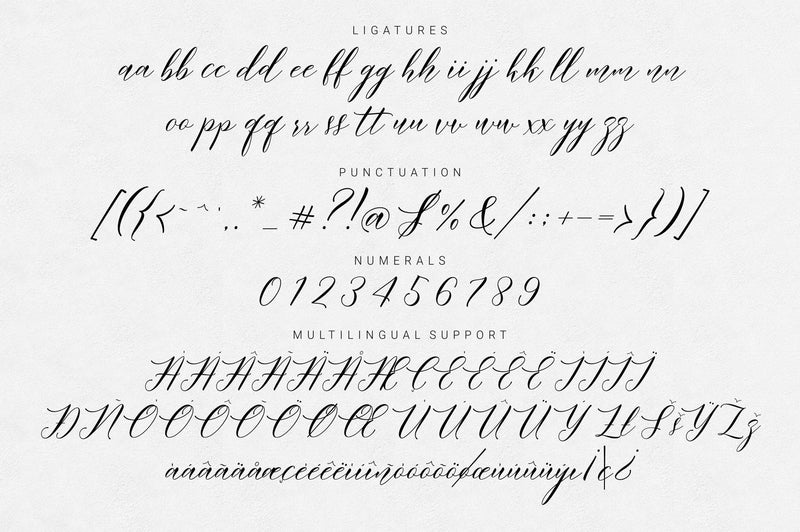 LIGATURES
aa bb cc dd ee ff gg hh ii jj kk ll mm nn
oo pp qq rr ss tt uu vv ww xx yy zz
PUNCTUATION
[({<~^',.*_#?!@$%&/:;+-=>})]
NUMERALS
0123456789
MULTILINGUAL SUPPORT
ÀÁÂÃÄÅÆÇÈÉÊËÌÍÎÏ
ÐÑÒÓÔÕÖØŒÙÚÛÜÝŁłŠšŸŽž
àáâãäåæçèéêëìíîïñòóôõöøœùúûüýı¡¢¿